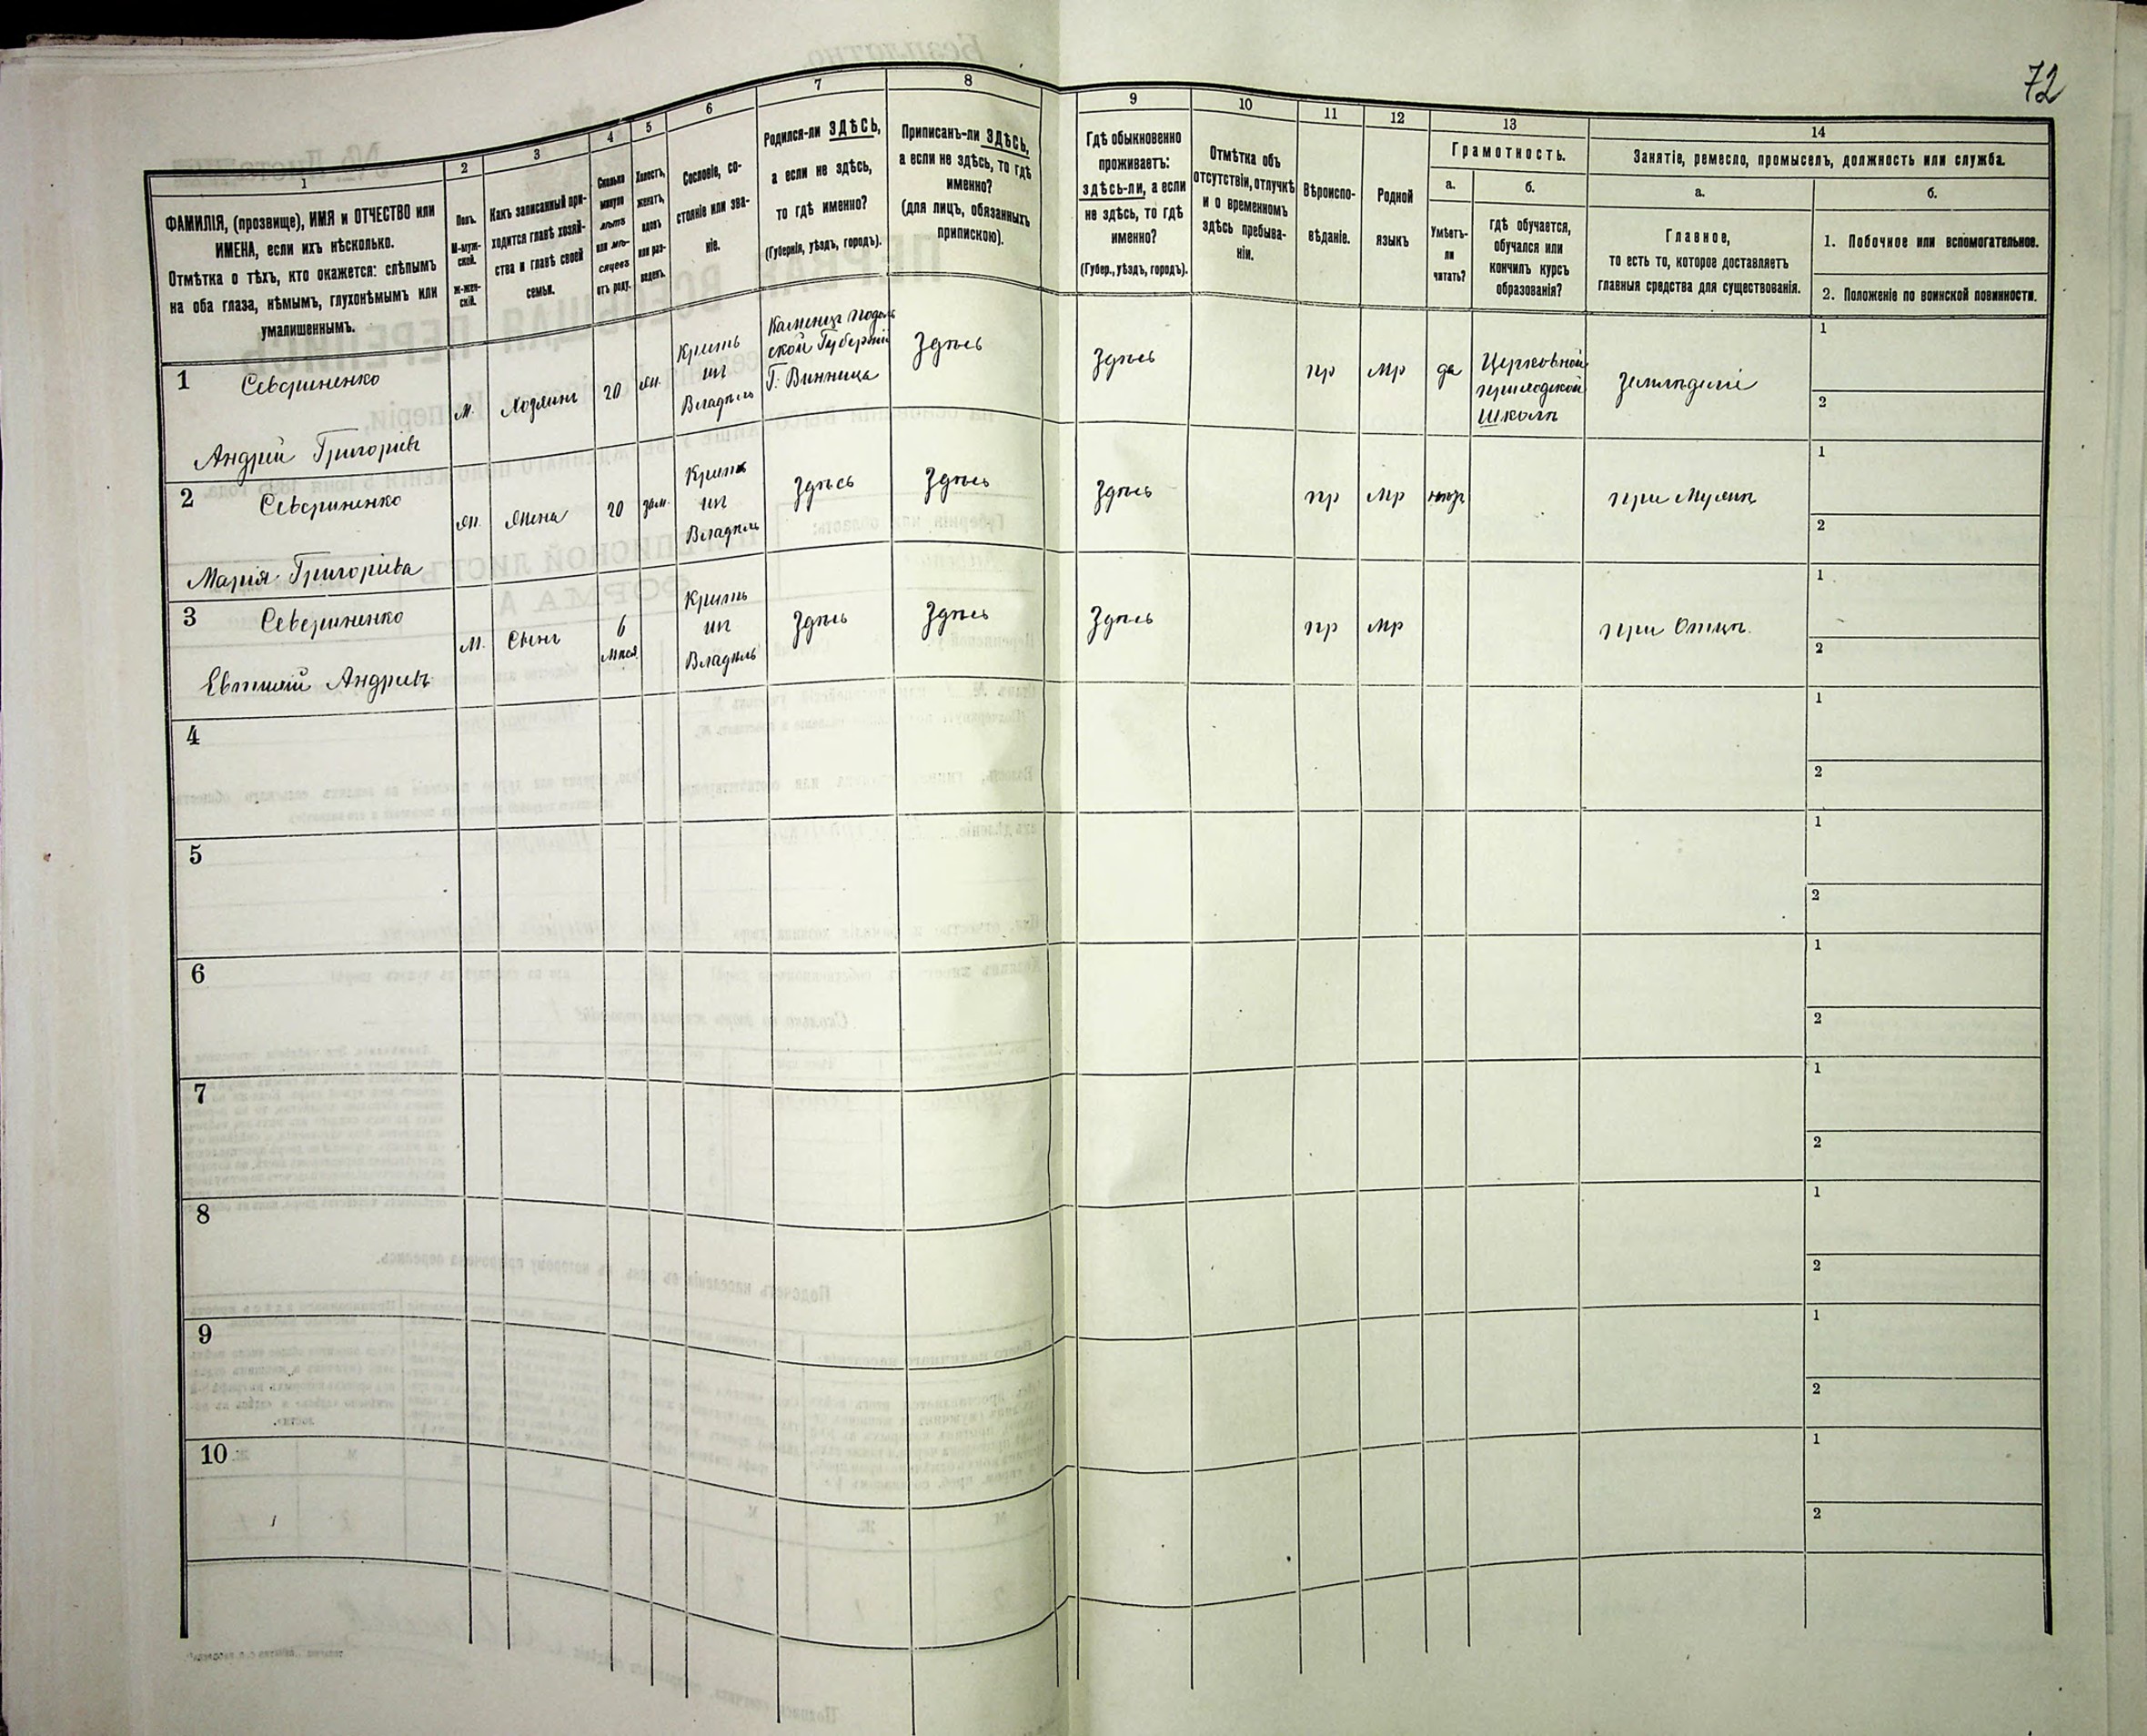 72
1
2
3
4
5
6
7
8
9
10
11
12
13
14
ФАМИЛІЯ, (прозвище), ИМЯ и ОТЧЕСТВО или
ИМЕНА, если ихъ нѣсколько.
Отмѣтка о тѣхъ, кто окажется: слѣпымъ
на оба глаза, нѣмымъ, глухонѣмымъ или
умалишеннымъ.
Полъ.
М-муж-
ской.
Ж-жен-
скій.
Какъ записанный при-
ходится главѣ хозяй-
ства и главѣ своей
семьи.
Сколько
минуло
лѣтъ
или мѣ-
сяцевъ
отъ роду.
Холостъ,
женатъ,
вдовъ
или раз-
веденъ.
Сословіе, со-
стояніе или зва-
ніе.
Родился-ли ЗДѢСЬ,
а если не здѣсь,
то гдѣ именно?
(Губернія, уѣздъ, городъ).
Приписанъ-ли ЗДѢСЬ,
а если не здѣсь, то гдѣ
именно?
(для лицъ, обязанныхъ
припискою).
Гдѣ обыкновенно
проживаетъ:
здѣсь-ли, а если
не здѣсь, то гдѣ
именно?
(Губер., уѣздъ, городъ).
Отмѣтка объ
отсутствіи, отлучкѣ
и о временномъ
здѣсь пребыва-
ніи.
Вѣроиспо-
вѣданіе.
Родной
языкъ
Грамотность.
а.
Умѣетъ-
ли
читать?
б.
гдѣ обучается,
обучался или
кончилъ курсъ
образованія?
Занятіе, ремесло, промыселъ, должность или служба.
а.
Главное,
то есть то, которое доставляетъ
главныя средства для существованія.
б.
1. Побочное или вспомогательное.
2. Положеніе по воинской повинности.
1
Севериненко
Андрей Григоріевъ
М.
Хозяинъ
20
жн.
Крить
ип
Владѣль
Каменецъ Подоль
ской Губерніи
Г. Винница
Здѣсь
Здѣсь
пр
мр
да
Церковной
приходской
Школѣ
земледѣліе
1
2
2
Севериненко
Марія Григоріева
жн.
жена
20
зам.
Здѣсь
Здѣсь
Здѣсь
пр
мр
нтъ
при Мужѣ
1
2
3
Севериненко
Евтихій Андреевъ
М.
Сынъ
6
Мѣся
Здѣсь
Здѣсь
Здѣсь
пр
мр
при Отцѣ.
1
2
4
1
2
5
1
2
6
1
2
7
1
2
8
1
2
9
1
2
10
1
2